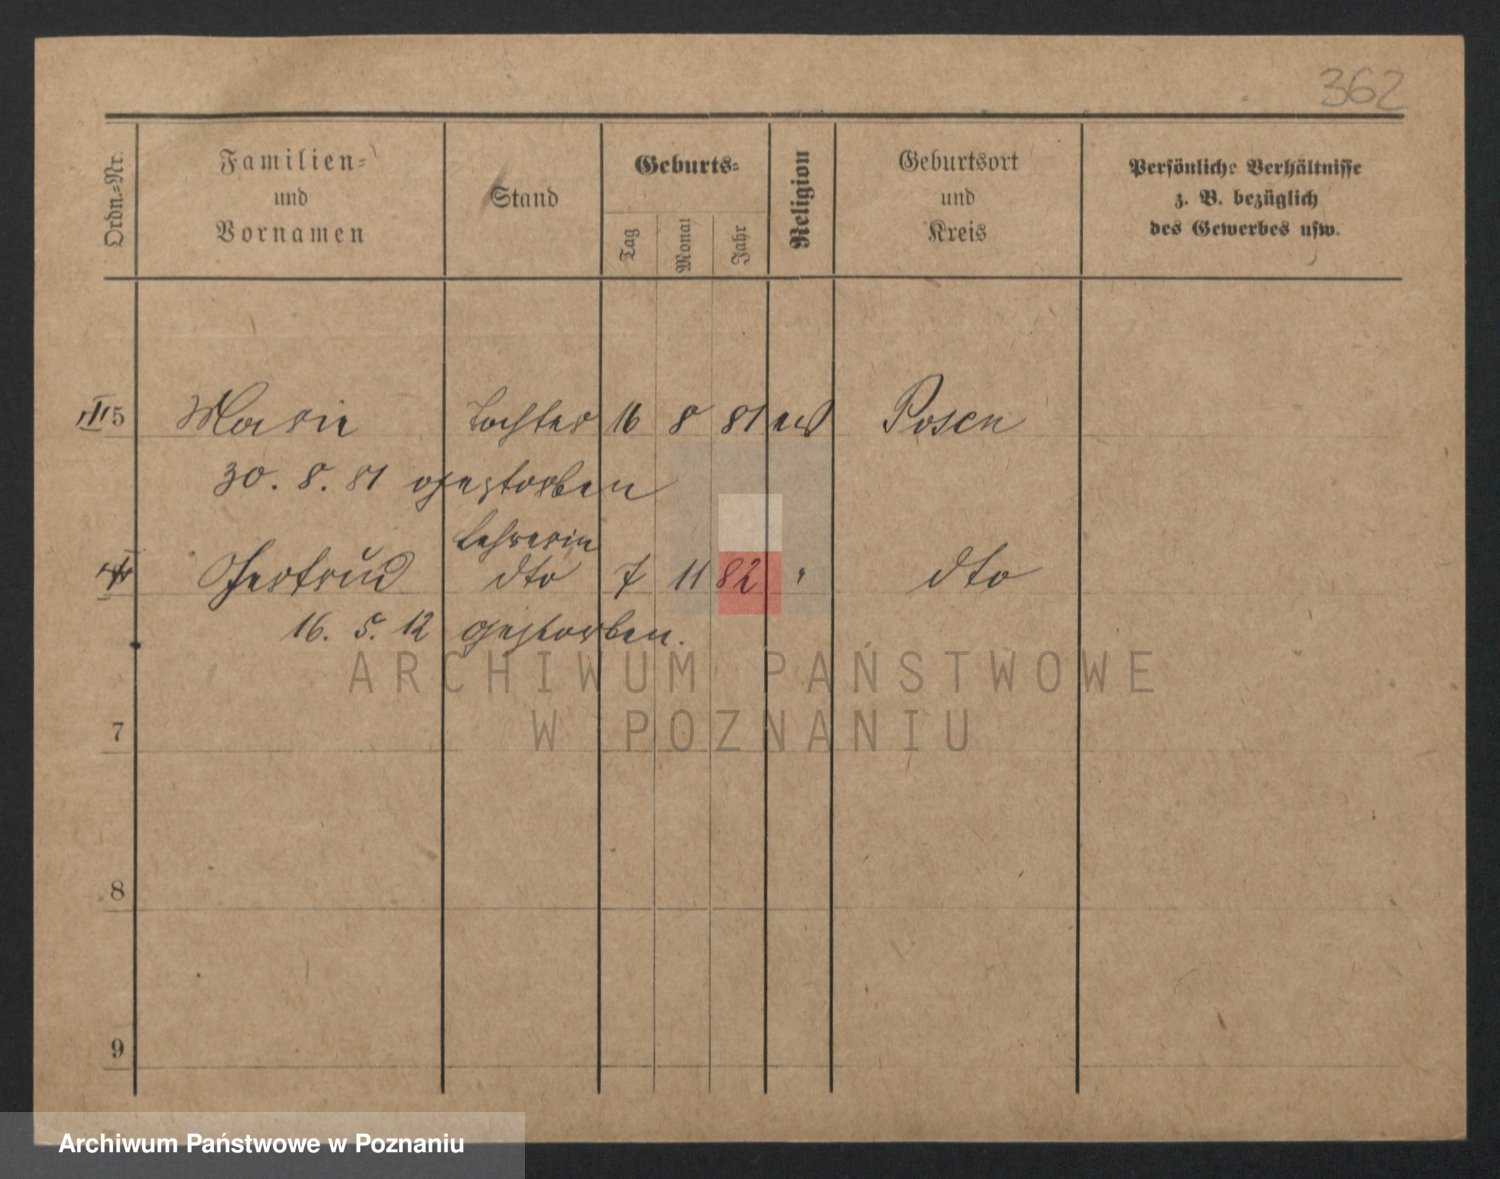 362
Ordn.-Nr.
Familien-
und
Vornamen
Stand
Geburts-
Tag
Monat
Jahr
Religion
Geburtsort
und
Kreis
Persönliche Verhältnisse
z. B. bezüglich
des Gewerbes usw.
III 5 Marie Tochter 16 8 81 Posen
30. 8. 81 gestorben
Lehrerin
Gertrud dto 7 11 82 " dto
16. 5. 12 gestorben.
ARCHIWUM PAŃSTWOWE
W POZNANIU
7
8
9
Archiwum Państwowe w Poznaniu